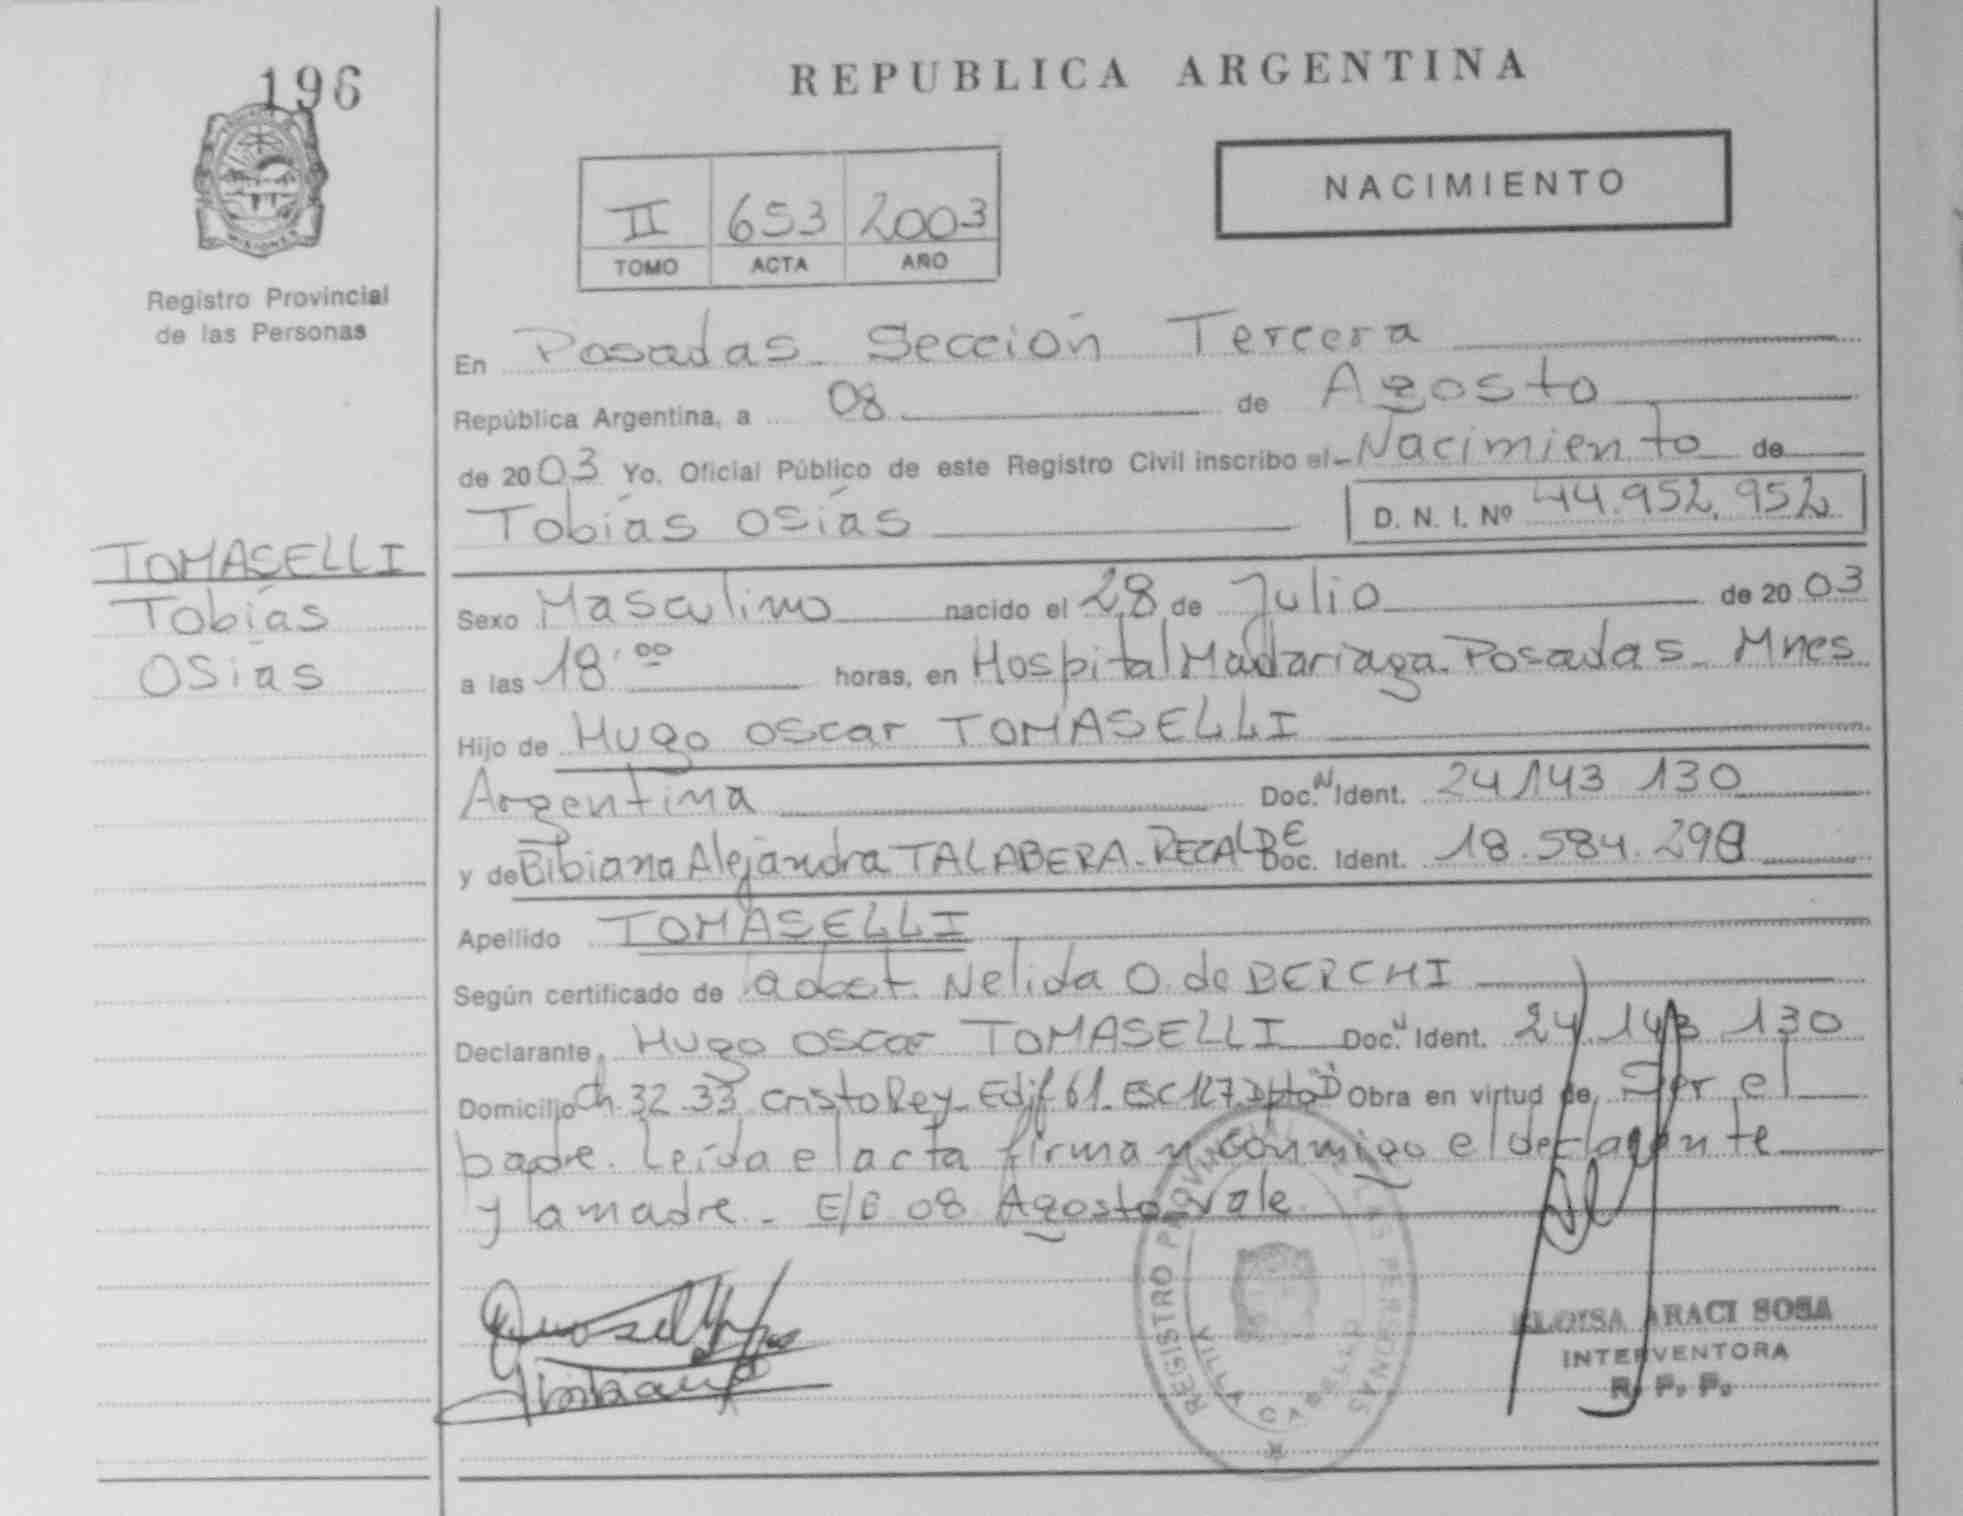 196
REPUBLICA ARGENTINA
NACIMIENTO
II 653 2003
TOMO ACTA AÑO
MISIONES
Registro Provincial
de las Personas
En Posadas - Sección Tercera
República Argentina, a 08 de Agosto
de 2003 Yo, Oficial Público de este Registro Civil inscribo el Nacimiento de
Tobías Osías D. N. I. Nº 44.952.952
TOMASELLI
Tobías
Osías
Sexo Masculino nacido el 28 de Julio de 2003
a las 18:00 horas, en Hospital Madariaga - Posadas - Mnes
Hijo de Hugo Oscar TOMASELLI
Argentina Doc. N Ident. 24.143.130
y de Bibiana Alejandra TALABERA - RECALDE Doc. Ident. 18.584.298
Apellido TOMASELLI
Según certificado de la obst. Nelida O. de BERCHI
Declarante, Hugo Oscar TOMASELLI Doc. N Ident. 24.143.130
Domicilio Ch. 32-33 Cristo Rey - Edif 61 - Esc 127 Dpto "D" Obra en virtud de, Ser el
padre. Leída el acta firman conmigo el declarante
y la madre - E/E 08 Agosto Vale.
REGISTRO PROVINCIAL DE LAS PERSONAS
VILLA CABELLO
ELOISA ARACI SOSA
INTERVENTORA
R. P. P.